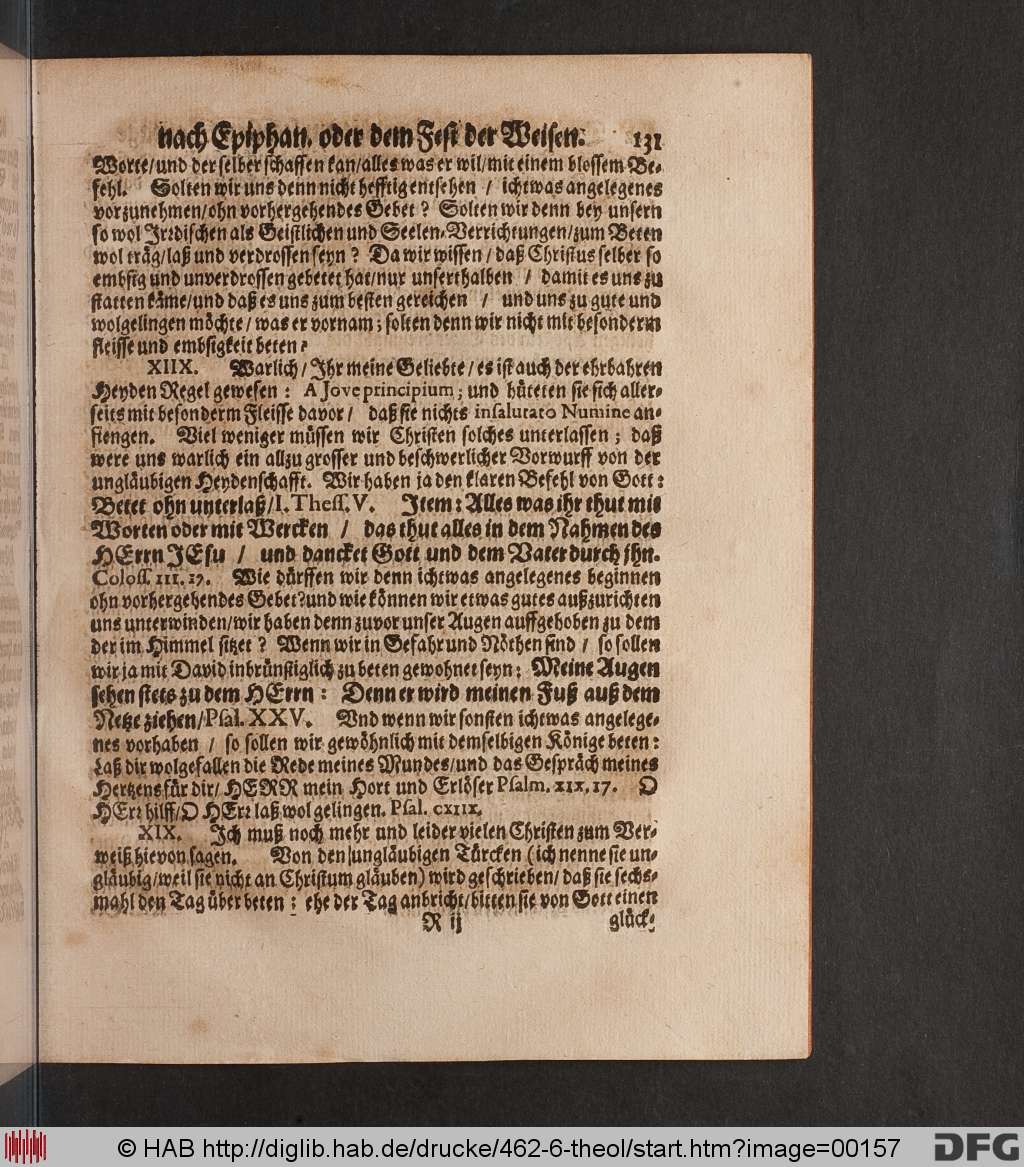 nach Epiphan. oder dem Fest der Weisen. 131
Worte/und der selber schaffen kan/alles was er wil/mit einem blossem Be-
fehl. Solten wir uns denn nicht hefftig entsehen / ichtwas angelegenes
vorzunehmen/ohn vorhergehendes Gebet? Solten wir denn bey unsern
so wol Irrdischen als Geistlichen und Seelen-Verrichtungen/zum Beten
wol träg/laß und verdrossen seyn? Da wir wissen/ daß Christus selber so
embsig und unverdrossen gebetet hat/nur unserthalben / damit es uns zu
statten käme/und daß es uns zum besten gereichen / und uns zu gute und
wolgelingen möchte/ was er vornam; solten denn wir nicht mit besonderm
fleisse und embsigkeit beten?
XIIX. Warlich/ Ihr meine Geliebte/ es ist auch der ehrbahren
Heyden Regel gewesen: A Jove principium; und hüteten sie sich aller-
seits mit besonderm Fleisse davor/ daß sie nichts insalutato Numine an-
fiengen. Viel weniger müssen wir Christen solches unterlassen; daß
were uns warlich ein allzu grosser und beschwerlicher Vorwurff von der
ungläubigen Heydenschafft. Wir haben ja den klaren Befehl von Gott:
Betet ohn unterlaß/I. Thess. V. Item: Alles was ihr thut mit
Worten oder mit Wercken / das thut alles in dem Nahmen des
HErrn JEsu / und dancket Gott und dem Vater durch jhn.
Coloss. III. 17. Wie dürffen wir denn ichtwas angelegenes beginnen
ohn vorhergehendes Gebet?und wie können wir etwas gutes außzurichten
uns unterwinden/wir haben denn zuvor unser Augen auffgehoben zu dem
der im Himmel sitzet? Wenn wir in Gefahr und Nöthen sind / so sollen
wir ja mit David inbrünstiglich zu beten gewohnet seyn: Meine Augen
sehen stets zu dem HErrn: Denn er wird meinen Fuß auß dem
Netze ziehen/Psal. XXV. Vnd wenn wir sonsten ichtwas angelege-
nes vorhaben / so sollen wir gewöhnlich mit demselbigen Könige beten:
Laß dir wolgefallen die Rede meines Mundes/und das Gespräch meines
Hertzens für dir/ HERR mein Hort und Erlöser Psalm. XIX, 17. O
HErr hilff/O HErr laß wol gelingen. Psal. CXIIX.
XIX. Ich muß noch mehr und leider vielen Christen zum Ver-
weiß hievon sagen. Von den ungläubigen Türcken (ich nenne sie un-
gläubig/weil sie nicht an Christum gläuben) wird geschrieben/ daß sie sechs-
mahl den Tag über beten: ehe der Tag anbricht/bitten sie von Gott einen
R ij glück-
© HAB http://diglib.hab.de/drucke/462-6-theol/start.htm?image=00157
DFG